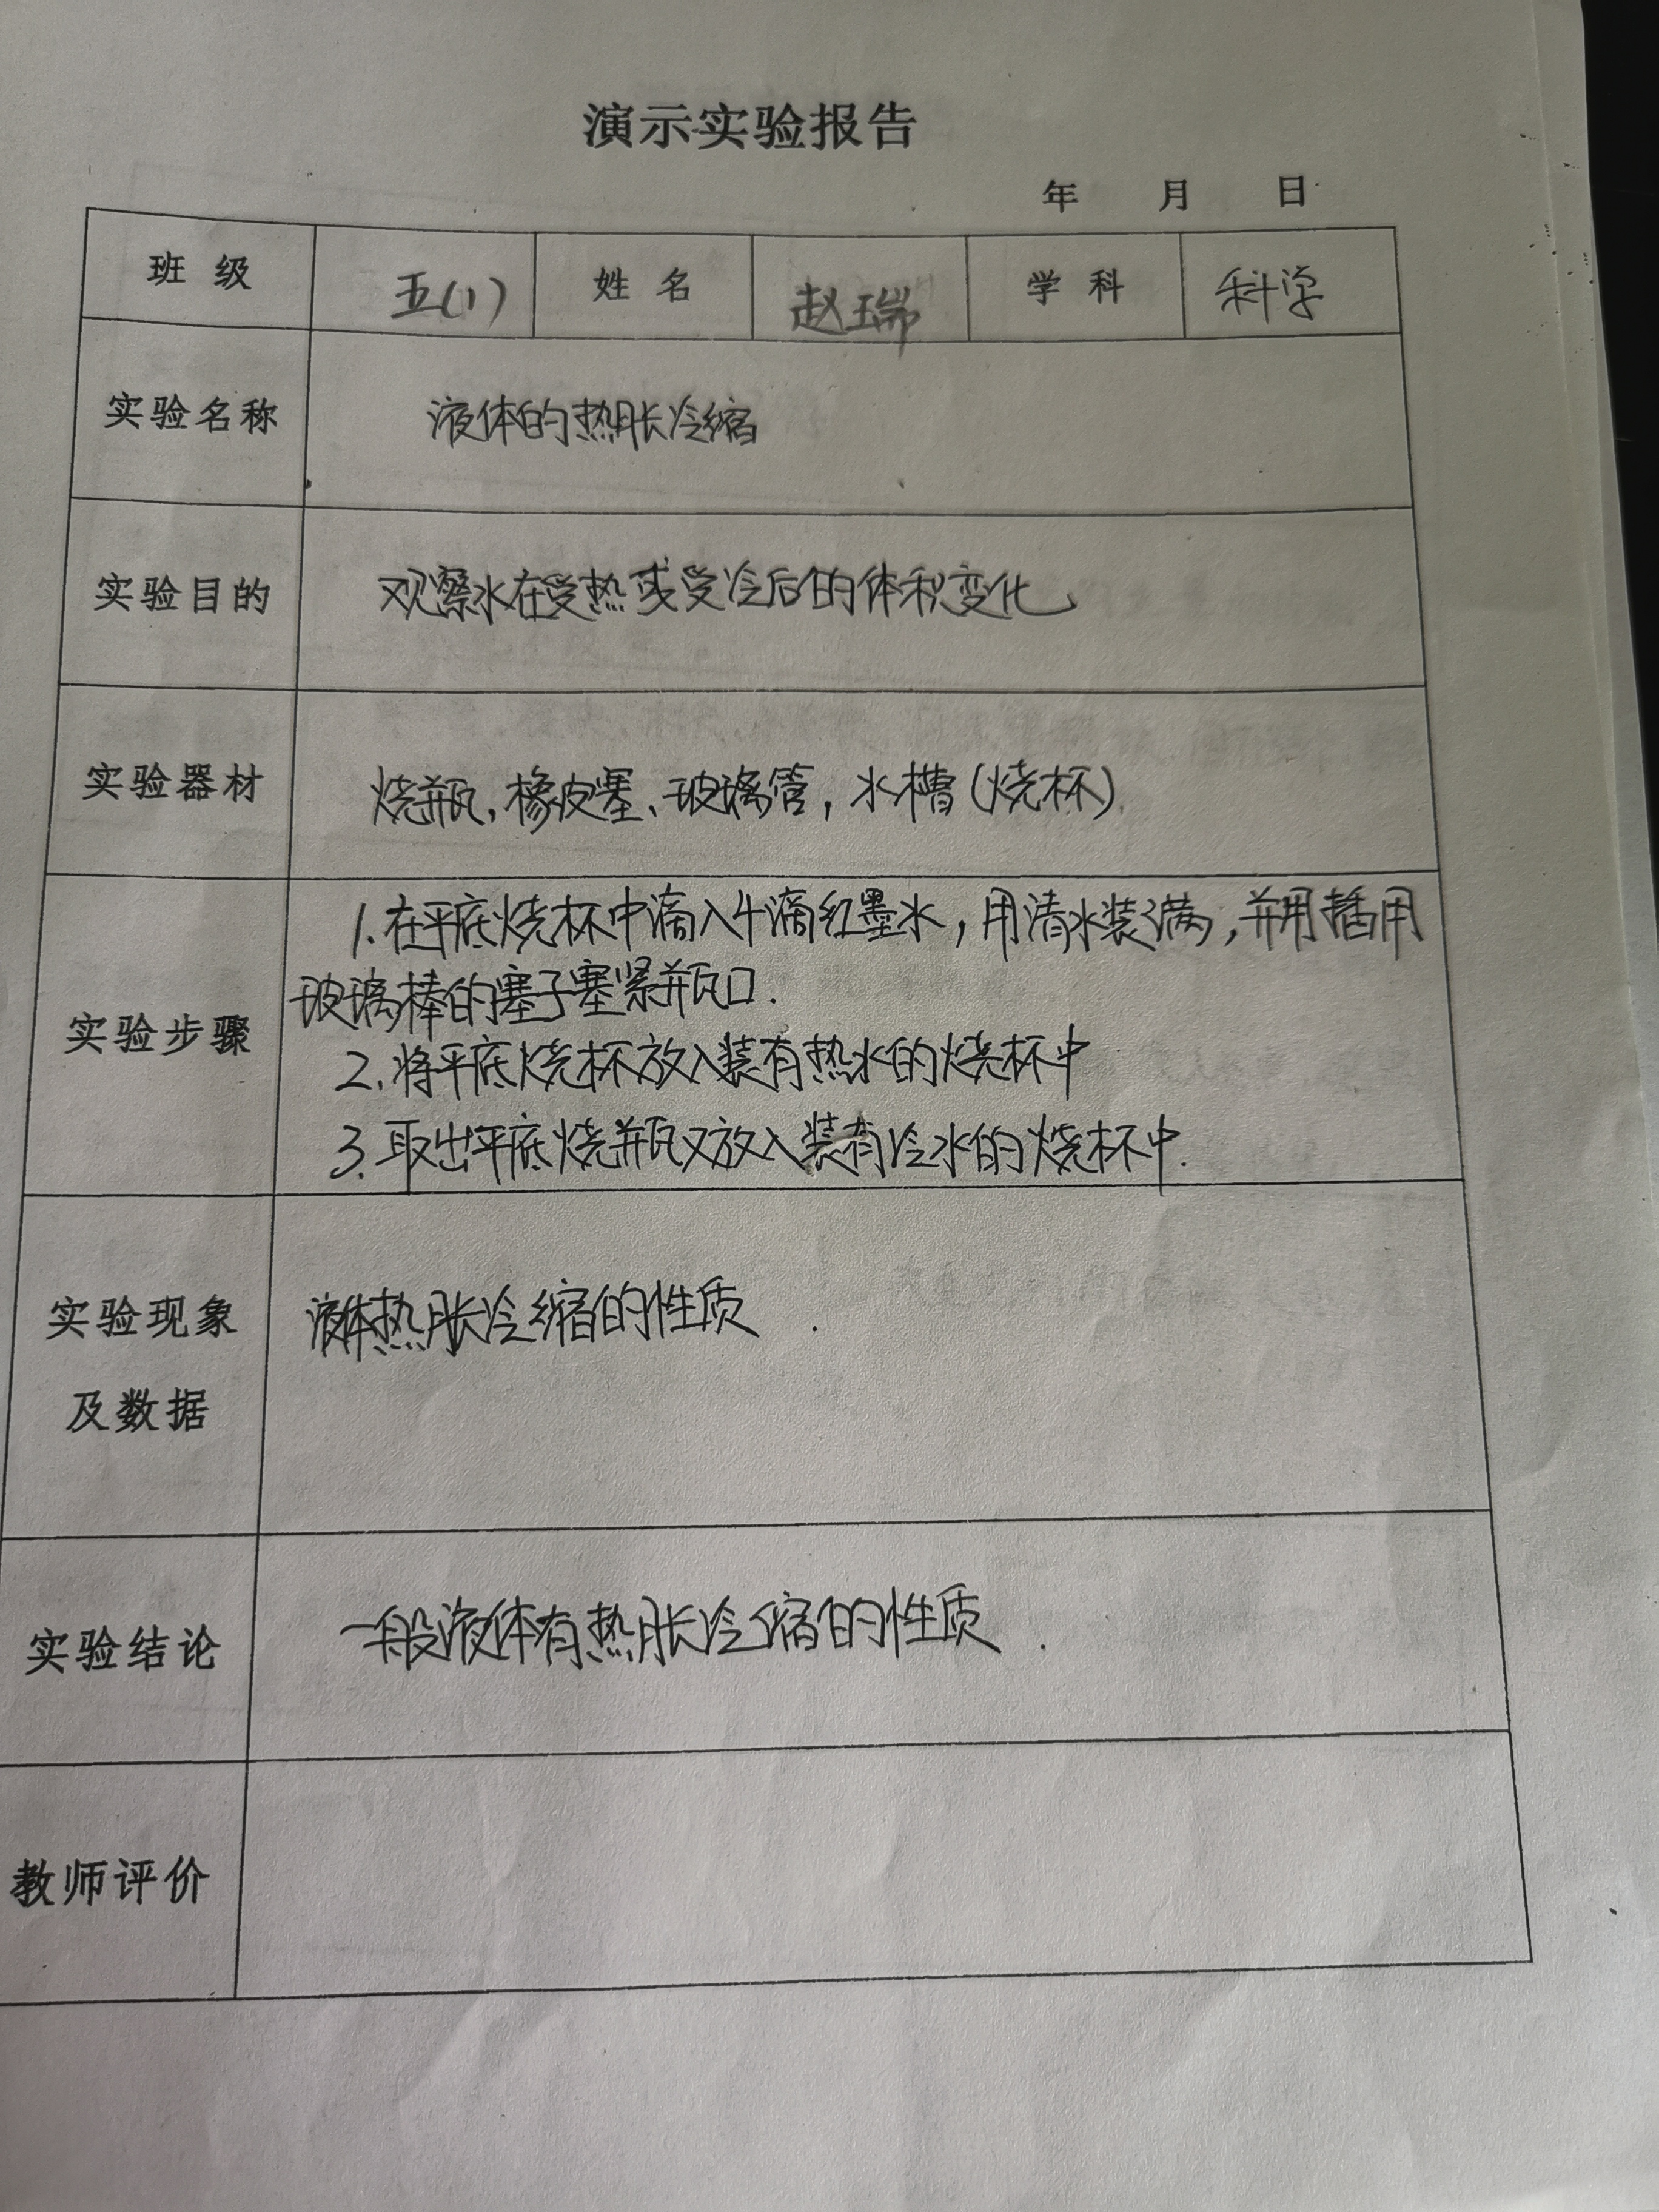 演示实验报告
年 月 日
班 级 五(1) 姓 名 赵瑞 学 科 科学
实验名称 液体的热胀冷缩
实验目的 观察水在受热或受冷后的体积变化
实验器材 烧瓶,橡皮塞、玻璃管,水槽(烧杯)
1.在平底烧杯中滴入4滴红墨水,用清水装满,并用插用
玻璃棒的塞子塞紧瓶口.
实验步骤
2.将平底烧杯放入装有热水的烧杯中
3.取出平底烧瓶又放入装有冷水的烧杯中.
实验现象 液体热胀冷缩的性质.
及数据
实验结论 一般液体有热胀冷缩的性质.
教师评价